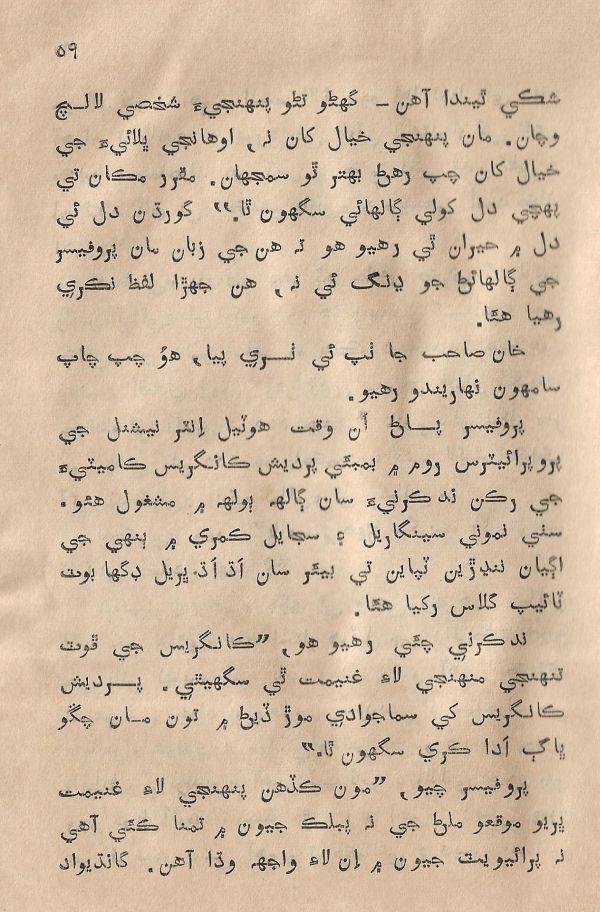 ٥٩
شڪي ٿيندا آهن – گهڻو تڻو پنهنجيءَ شخصي لالچ
وچان. مان پنهنجي خيال کان نہ، اوهانجي ڀلائيءَ جي
خيال کان چپ رهڻ بهتر ٿو سمجهان. مقرر مڪان تي
پهچي دل کولي ڳالهائي سگهون ٿا.“ گورڌن دل ئي
دل ۾ حيران ٿي رهيو هو تہ هن جي زبان مان پروفيسر
جي ڳالهائڻ جو ڍنگ ئي نہ، هن جهڙا لفظ نڪري
رهيا هئا.
خان صاحب جا ٺپ ئي ٺري پيا، هوُ چپ چاپ
سامهون نهاريندو رهيو.
پروفيسر پاڻ اُن وقت هوٽيل اِنٽر نيشنل جي
پروپرائيٽرس روم ۾ بمبئي پرديش ڪانگريس ڪاميٽيءَ
جي رڪن ندڪرنيءَ سان ڳالهہ ٻولهہ ۾ مشغول هئو.
سٺي نموني سينگاريل ۽ سجايل ڪمري ۾ ٻنهي جي
اڳيان ننڍڙين ٽپاين تي بيئر سان اَڌ اَڌ ڀريل ڊگها بوٽ
ٽائيپ گلاس رکيا هئا.
ندڪرني چئي رهيو هو، ”ڪانگريس جي ڦوٽ
تنهنجي منهنجي لاءِ غنيمت ٿي سگهيٿي. پرديش
ڪانگريس کي سماجوادي موڙ ڏيڻ ۾ تون مان چڱو
ڀاڱ اَدا ڪري سگهون ٿا.“
پروفيسر چيو، ”مون ڪڏهن پنهنجي لاءِ غنيمت
ڀريو موقعو ملڻ جي نہ پبلڪ جيون ۾ تمنا ڪئي آهي
نہ پرائيويٽ جيون ۾ اِن لاءِ واجهہ وڌا آهن. گانڌيواد